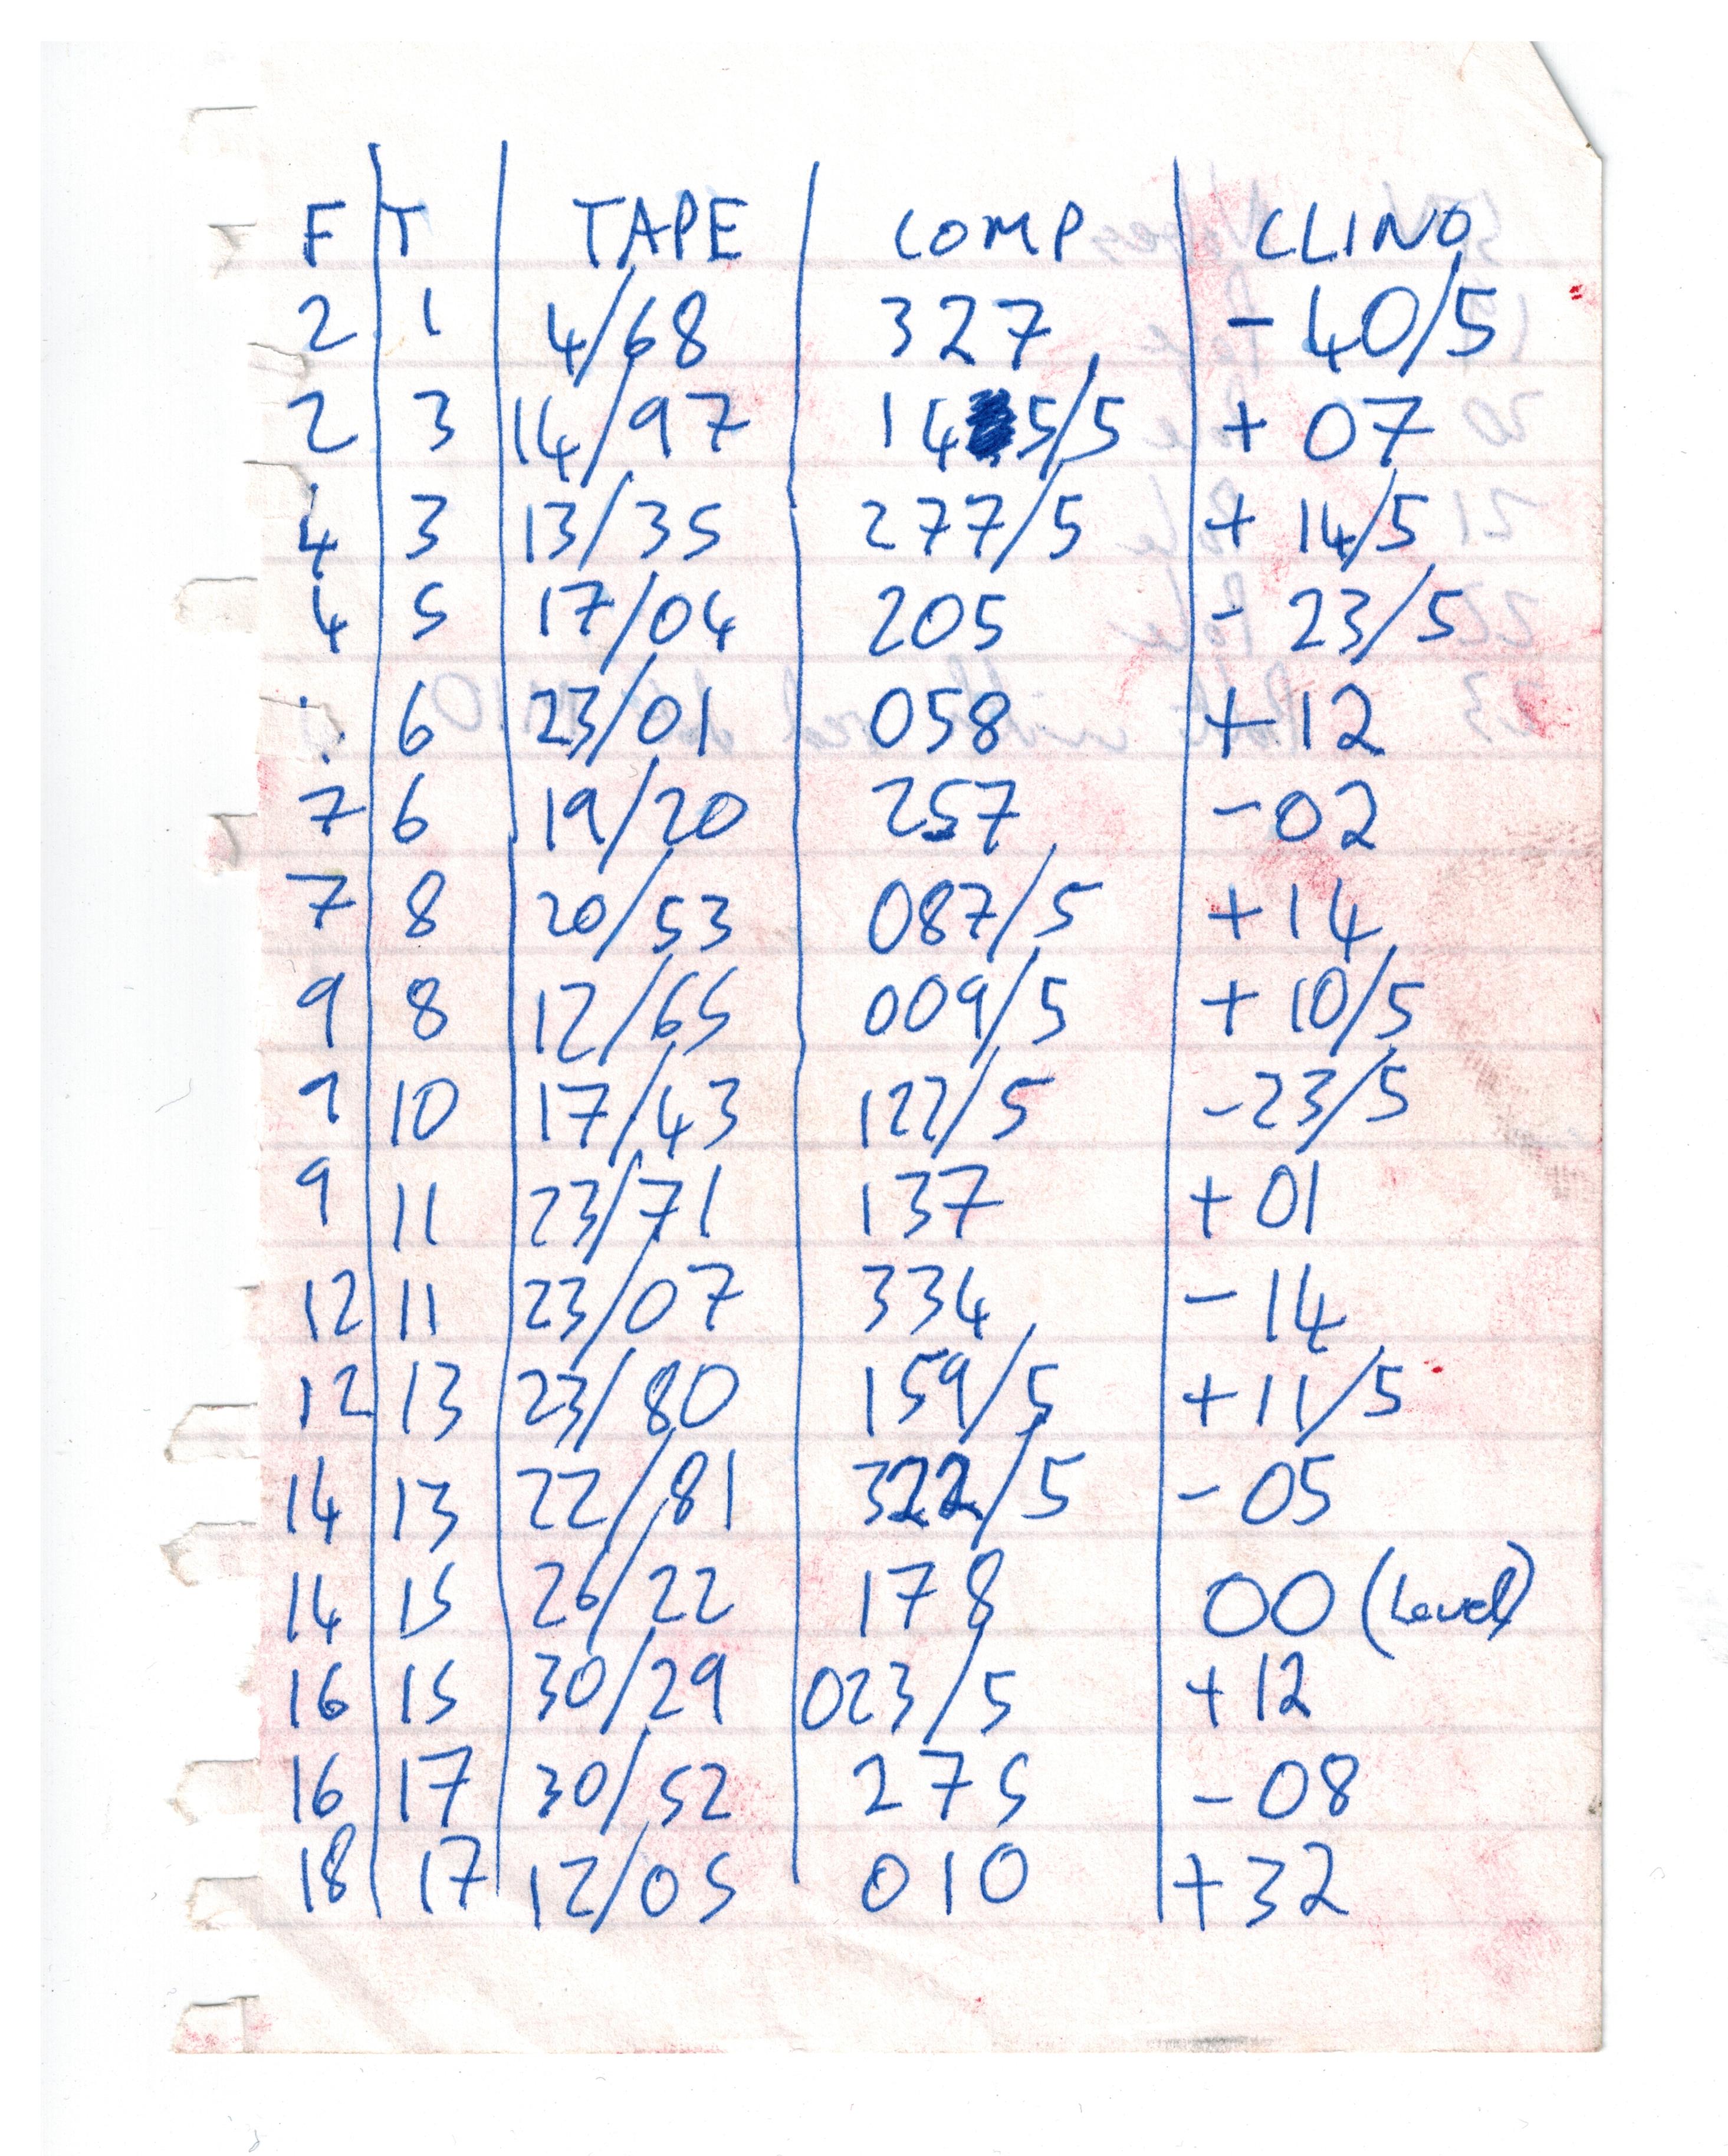 F T TAPE COMP CLINO
2 1 4/68 327 -40/5
2 3 14/97 145/5 +07
4 3 13/35 277/5 +14/5
4 5 17/04 205 -23/5
6 23/01 058 +12
7 6 19/20 257 -02
7 8 20/53 087/5 +14
9 8 12/65 009/5 +10/5
9 10 17/43 122/5 -23/5
9 11 23/71 137 +01
12 11 23/07 334 -14
12 13 23/80 159/5 +11/5
14 13 22/81 322/5 -05
14 15 26/22 178 00 (Level)
16 15 30/29 023/5 +12
16 17 30/52 275 -08
18 17 12/05 010 +32